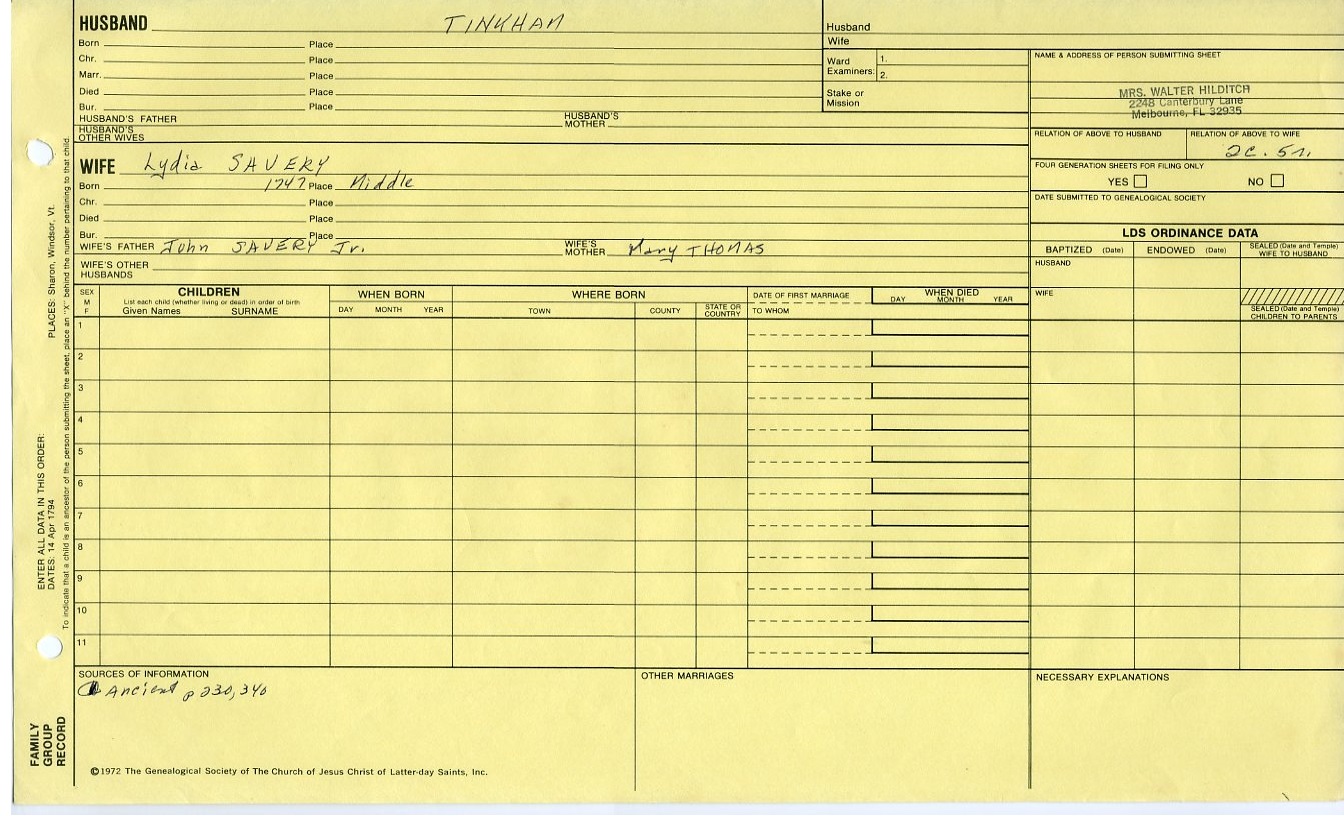 HUSBAND TINKHAM
Born Place
Chr. Place
Marr. Place
Died Place
Bur. Place
HUSBAND'S FATHER HUSBAND'S MOTHER
HUSBAND'S OTHER WIVES
Husband
Wife
Ward Examiners: 1.
2.
Stake or Mission
NAME & ADDRESS OF PERSON SUBMITTING SHEET
MRS. WALTER HILDITCH
2248 Canterbury Lane
Melbourne, FL 32935
RELATION OF ABOVE TO HUSBAND RELATION OF ABOVE TO WIFE
2C. 5r.
FOUR GENERATION SHEETS FOR FILING ONLY
YES NO
DATE SUBMITTED TO GENEALOGICAL SOCIETY
WIFE Lydia SAVERY
Born 1747 Place Middle
Chr. Place
Died Place
Bur. Place
WIFE'S FATHER John SAVERY Jr. WIFE'S MOTHER Mary THOMAS
WIFE'S OTHER HUSBANDS
LDS ORDINANCE DATA
BAPTIZED (Date) ENDOWED (Date) SEALED (Date and Temple) WIFE TO HUSBAND
HUSBAND
WIFE
SEALED (Date and Temple) CHILDREN TO PARENTS
SEX M F
CHILDREN
List each child (whether living or dead) in order of birth
Given Names SURNAME
WHEN BORN
DAY MONTH YEAR
WHERE BORN
TOWN COUNTY STATE OR COUNTRY
DATE OF FIRST MARRIAGE
TO WHOM
WHEN DIED
DAY MONTH YEAR
1
2
3
4
5
6
7
8
9
10
11
SOURCES OF INFORMATION
Ancient p 230, 340
OTHER MARRIAGES
NECESSARY EXPLANATIONS
©1972 The Genealogical Society of The Church of Jesus Christ of Latter-day Saints, Inc.
FAMILY GROUP RECORD
ENTER ALL DATA IN THIS ORDER:
DATES: 14 Apr 1794 PLACES: Sharon, Windsor, Vt.
To indicate that a child is an ancestor of the person submitting the sheet, place an "X" behind the number pertaining to that child.